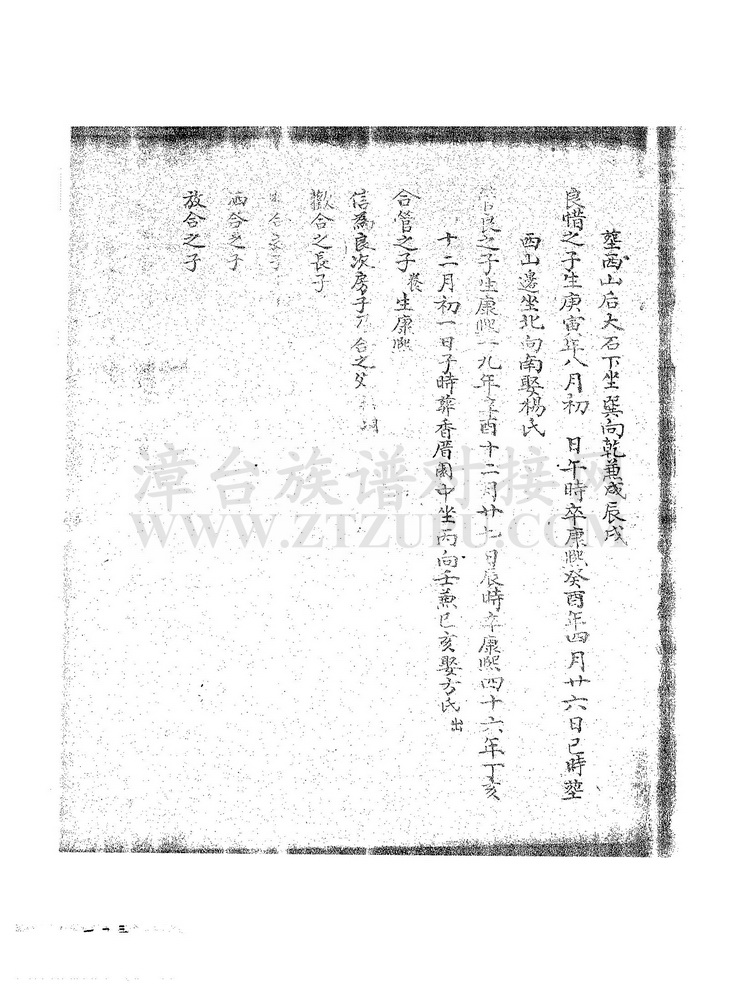 塟西山后大石下坐巽向乾兼戍辰戍
良惜之子生庚寅年八月初 日午時卒康熙癸酉年四月廿六日巳時塟
西山邊坐北向南娶楊氏
良之子生康熙 九年辛酉十二月廿七日辰時卒康熙四十六年丁亥
十二月初一日子時葬香厝園中坐丙向壬兼巳亥娶方氏出
合管之子養生康熙
信為良次房子 合之父
歡合之長子
合之子
合之子
放合之子
漳台族谱对接网
WWW.ZTZUPU.COM